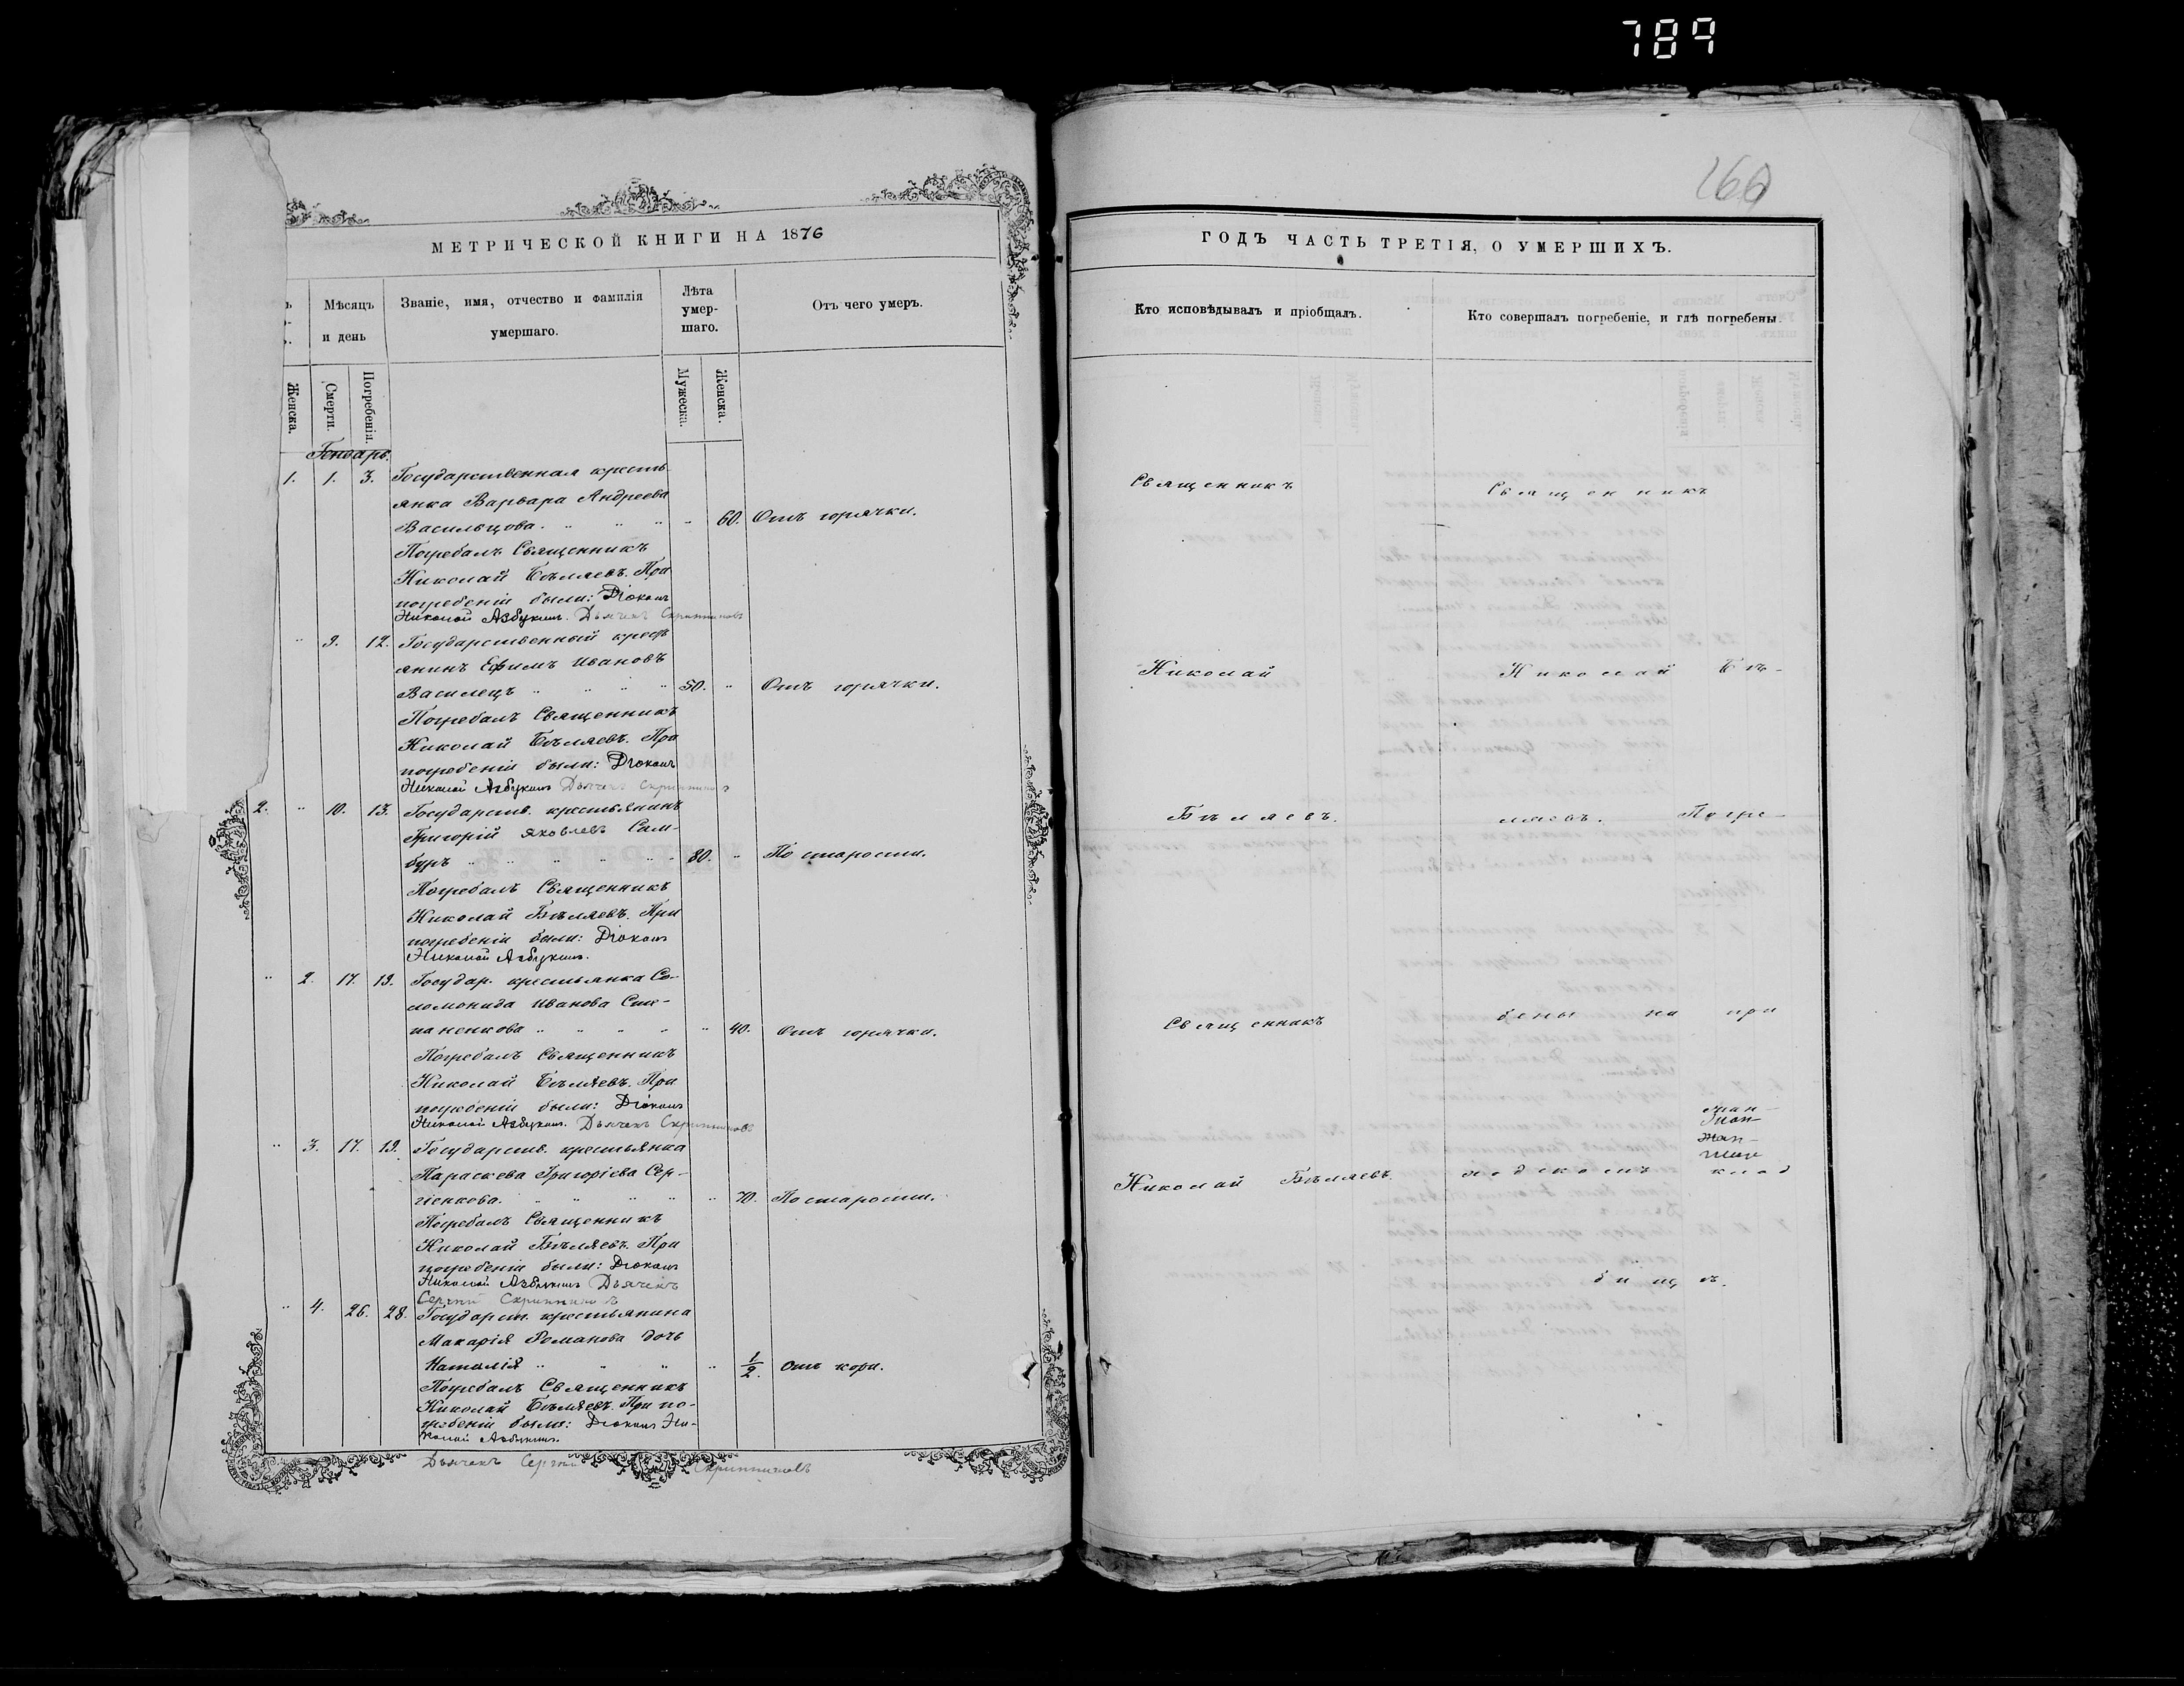 789
260
МЕТРИЧЕСКОЙ КНИГИ НА 1876
Мѣсяцъ и день
Званіе, имя, отчество и фамилія умершаго.
Лѣта умер-
шаго.
Отъ чего умеръ.
Женска.
Смерти.
Погребенія.
Мужеска.
Женска.
Генварь.
1. 1. 3. Государственная кресть-
янка Варвара Андреева
Васильцова. 60. Отъ горячки.
Погребалъ Священникъ
Николай Бѣляевъ. При
погребеніи были: Діаконъ
Николай Азбукинъ. Дьячекъ Скрипниковъ
" 9. 12. Государственный крест
янинъ Ефимъ Ивановъ
Василецъ 50. " Отъ горячки.
Погребалъ Священникъ
Николай Бѣляевъ. При
погребеніи были: Діаконъ
Николай Азбукинъ Дьячекъ Скрипниковъ
2. " 10. 13. Государств. крестьянинъ
Григорій Яковлевъ Сам-
буръ 80. " По старости.
Погребалъ Священникъ
Николай Бѣляевъ. При
погребеніи были: Діаконъ
Николай Азбукинъ.
" 2. 17. 19. Государ. крестьянка Со-
ломонида Иванова Сте-
паненкова " 40. Отъ горячки.
Погребалъ Священникъ
Николай Бѣляевъ. При
погребеніи были: Діаконъ
Николай Азбукинъ. Дьячекъ Скрипниковъ
" 3. 17. 19. Государств. крестьянка
Параскева Григоріева Сер-
гіенкова. " 70. По старости.
Погребалъ Священникъ
Николай Бѣляевъ. При
погребеніи были: Діаконъ
Николай Азбукинъ Дьячекъ
Сергій Скрипниковъ
" 4. 26. 28. Государст. крестьянина
Макарія Романова дочь
Наталія " 1/2. Отъ кори.
Погребалъ Священникъ
Николай Бѣляевъ. При по-
гребеніи были: Діаконъ Ни-
колай Азбукинъ.
Дьячекъ Сергій Скрипниковъ
ГОДЪ ЧАСТЬ ТРЕТІЯ, О УМЕРШИХЪ.
Кто исповѣдывалъ и пріобщалъ.
Кто совершалъ погребеніе, и гдѣ погребены.
Священникъ
Николай
Бѣляевъ.
Священникъ
Николай Бѣляевъ.
Священникъ
Николай Бѣ-
ляевъ. Погре-
бены на при
ходскомъ клад
бищѣ.